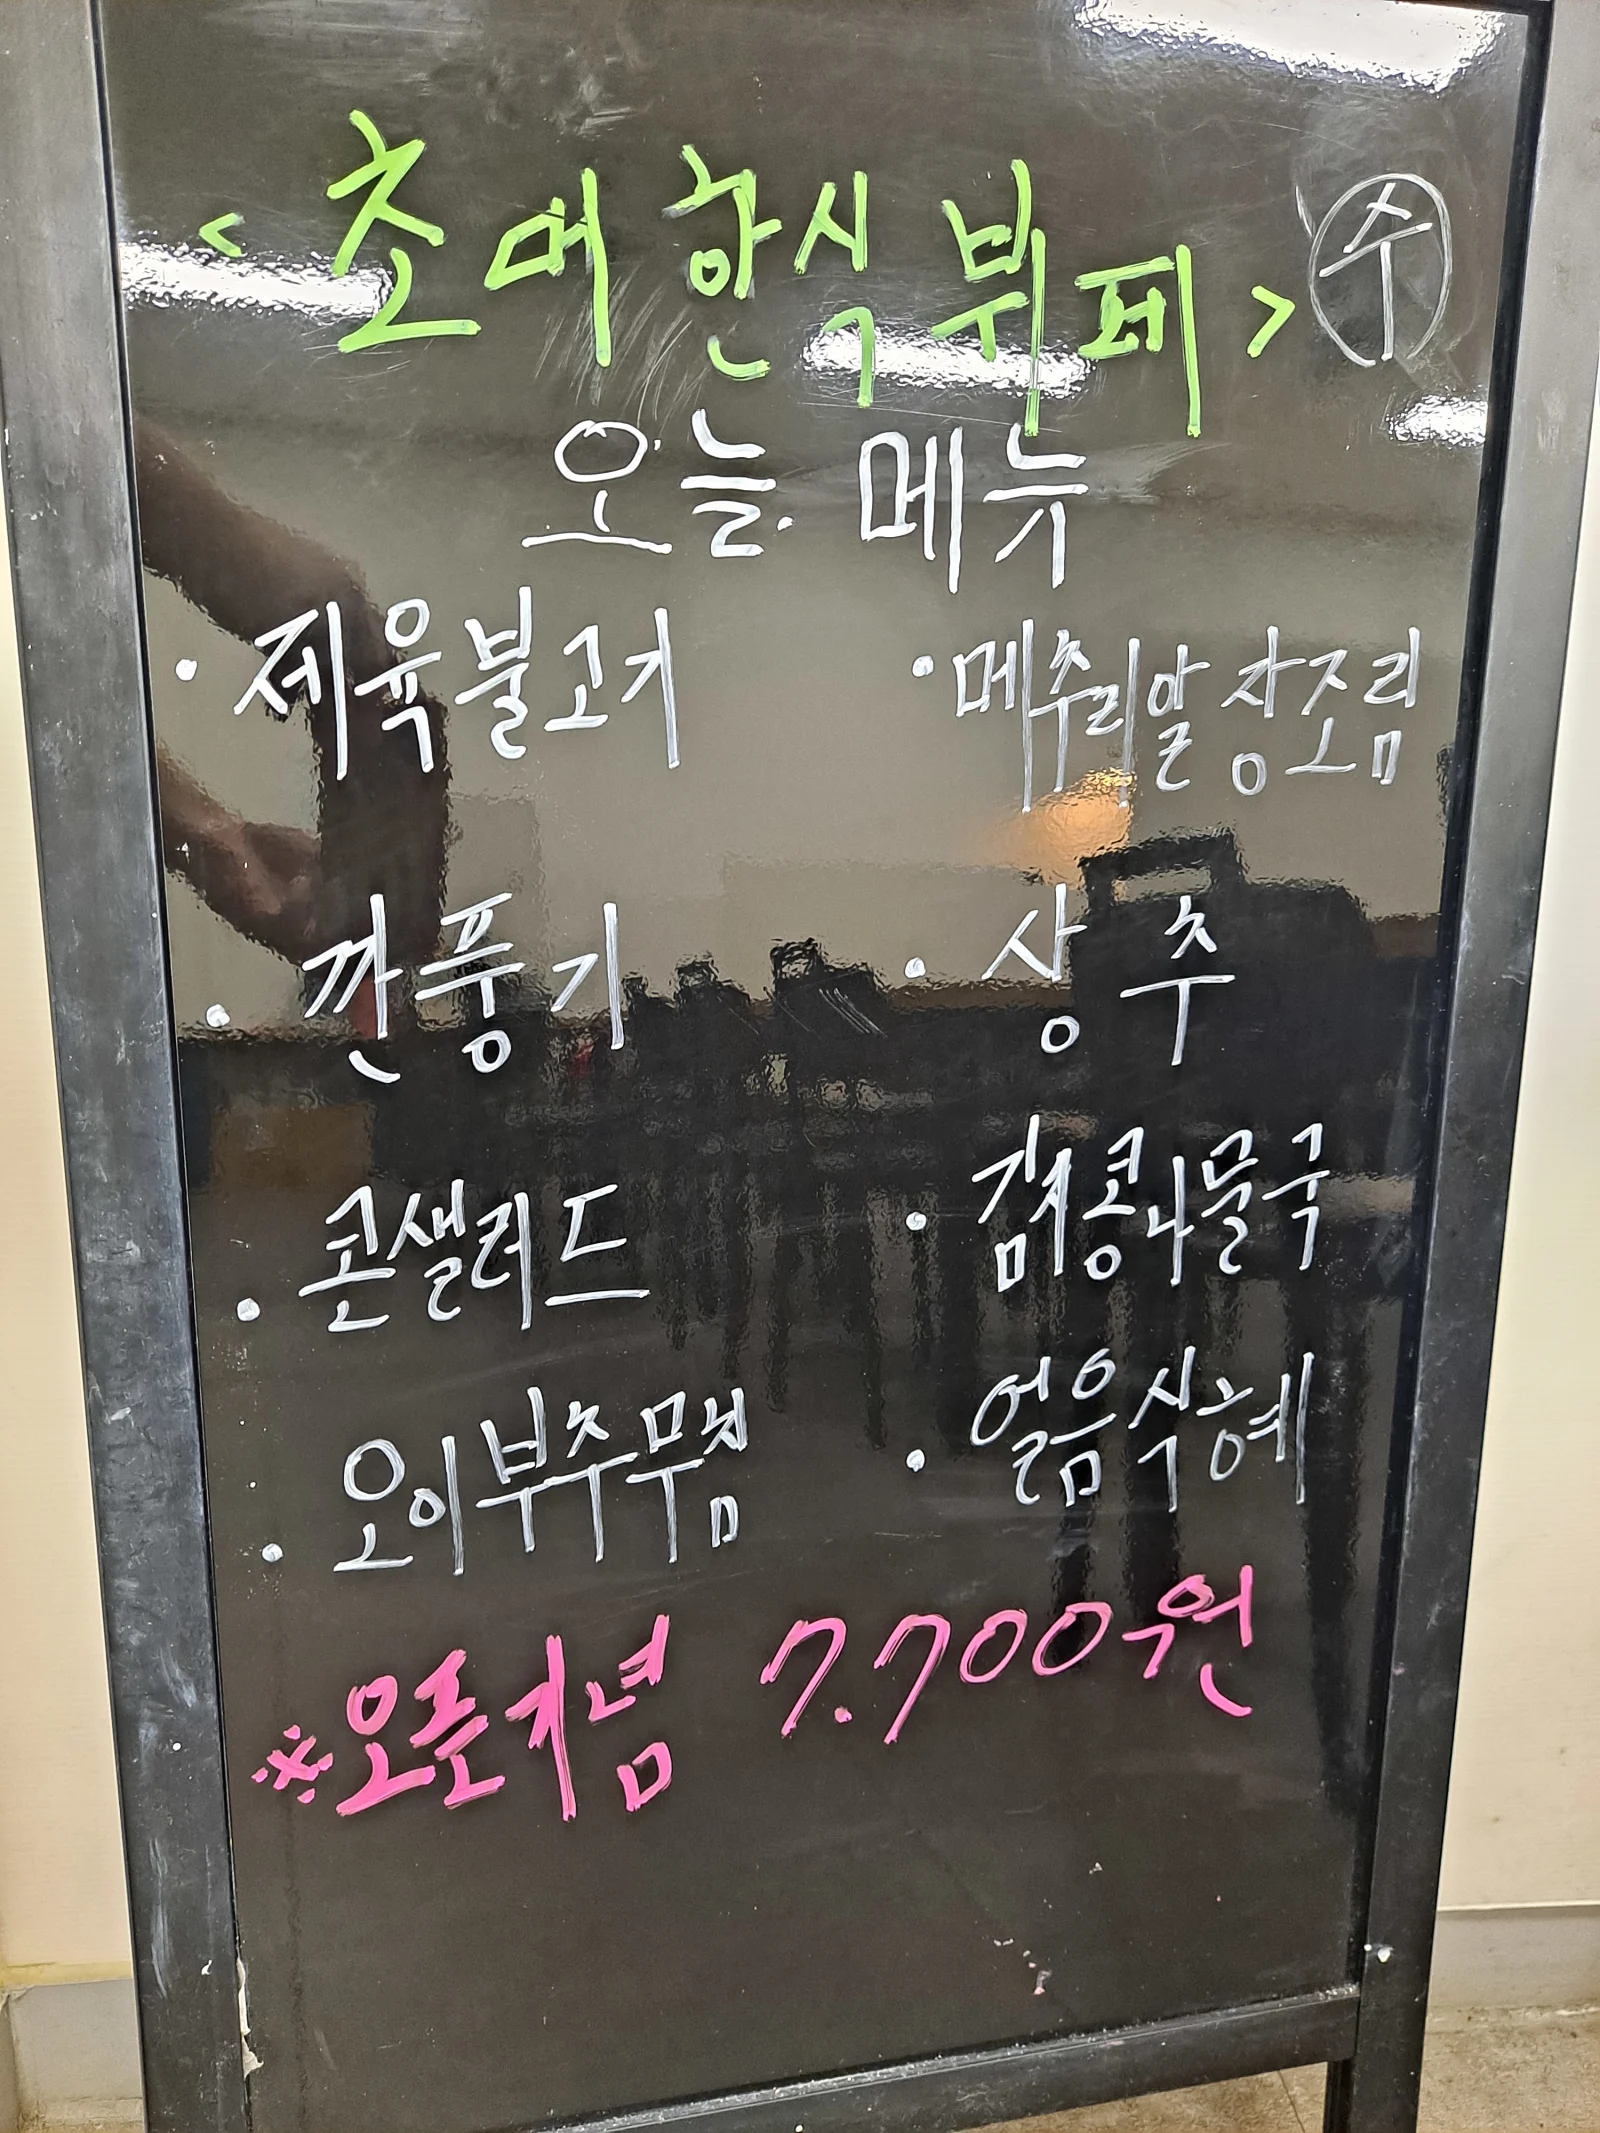 <초대 한식 뷔페> 수
오늘 메뉴
· 제육불고기
· 메추리알 장조림
· 깐풍기
· 상추
· 콘샐러드
· 김치콩나물국
· 오이부추무침
· 얼음식혜
※오픈기념 7.700원